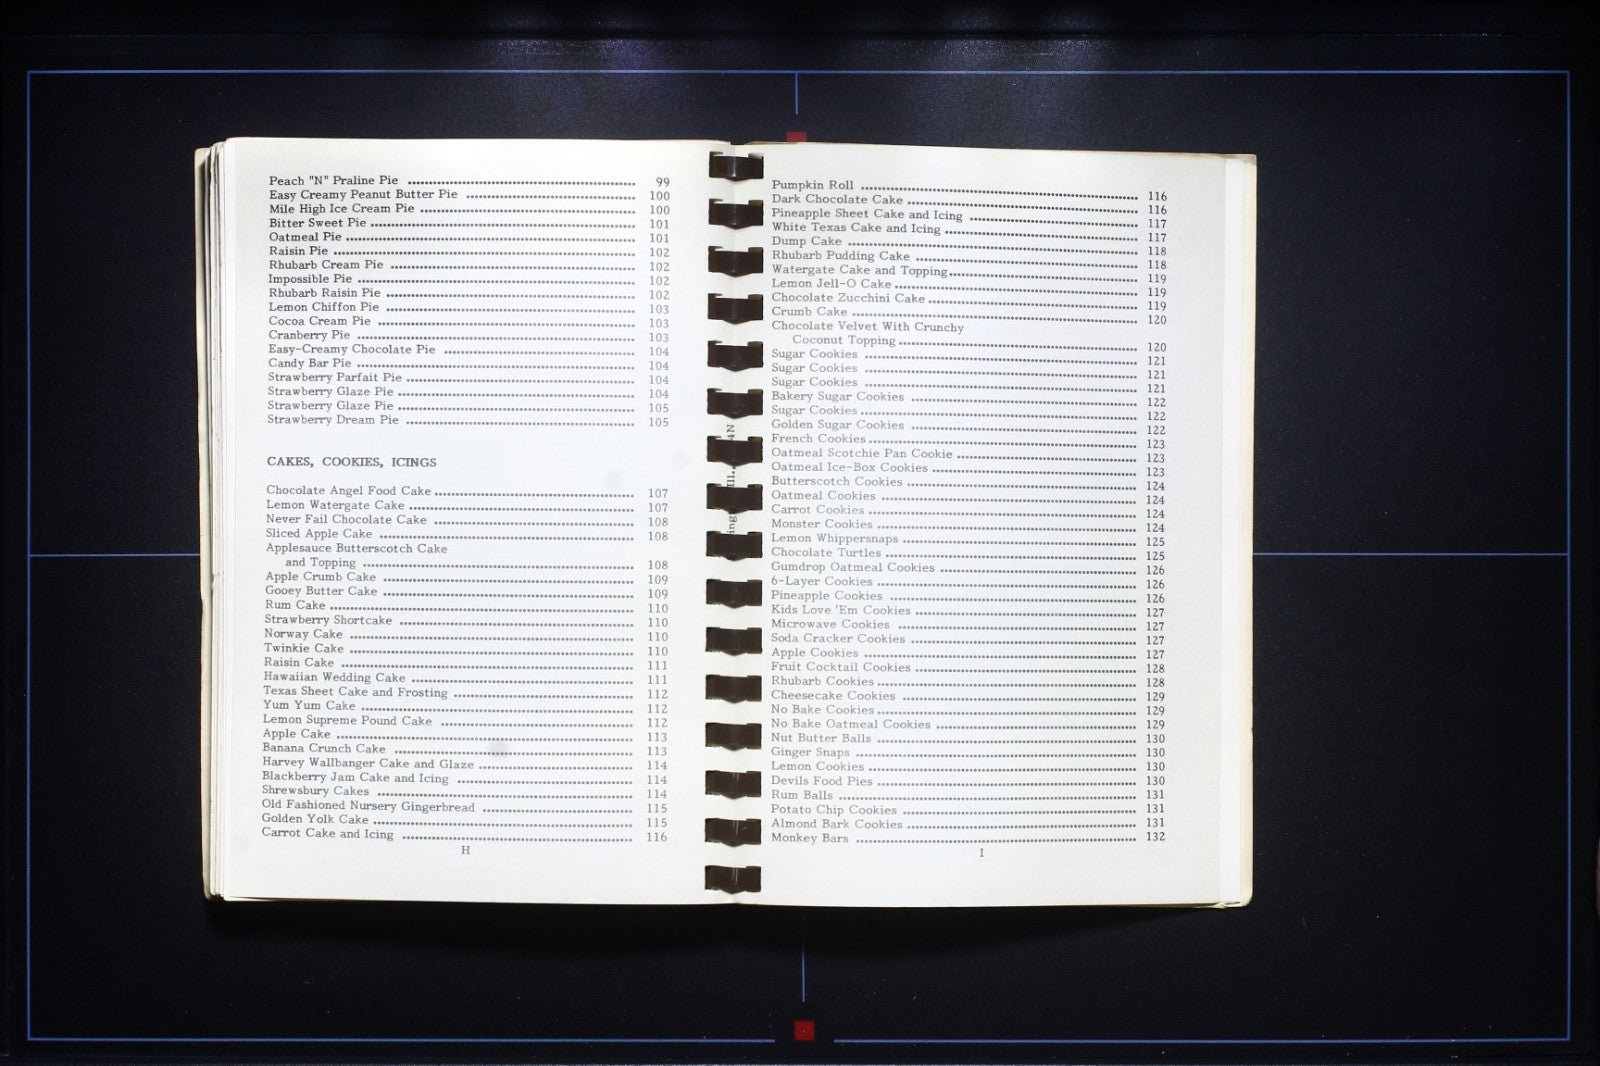 Peach "N" Praline Pie 99
Easy Creamy Peanut Butter Pie 100
Mile High Ice Cream Pie 100
Bitter Sweet Pie 101
Oatmeal Pie 101
Raisin Pie 102
Rhubarb Cream Pie 102
Impossible Pie 102
Rhubarb Raisin Pie 102
Lemon Chiffon Pie 103
Cocoa Cream Pie 103
Cranberry Pie 103
Easy-Creamy Chocolate Pie 104
Candy Bar Pie 104
Strawberry Parfait Pie 104
Strawberry Glaze Pie 104
Strawberry Glaze Pie 105
Strawberry Dream Pie 105
CAKES, COOKIES, ICINGS
Chocolate Angel Food Cake 107
Lemon Watergate Cake 107
Never Fail Chocolate Cake 108
Sliced Apple Cake 108
Applesauce Butterscotch Cake
and Topping 108
Apple Crumb Cake 109
Gooey Butter Cake 109
Rum Cake 110
Strawberry Shortcake 110
Norway Cake 110
Twinkie Cake 110
Raisin Cake 111
Hawaiian Wedding Cake 111
Texas Sheet Cake and Frosting 112
Yum Yum Cake 112
Lemon Supreme Pound Cake 112
Apple Cake 113
Banana Crunch Cake 113
Harvey Wallbanger Cake and Glaze 114
Blackberry Jam Cake and Icing 114
Shrewsbury Cakes 114
Old Fashioned Nursery Gingerbread 115
Golden Yolk Cake 115
Carrot Cake and Icing 116
H
Pumpkin Roll 116
Dark Chocolate Cake 116
Pineapple Sheet Cake and Icing 117
White Texas Cake and Icing 117
Dump Cake 118
Rhubarb Pudding Cake 118
Watergate Cake and Topping 119
Lemon Jell-O Cake 119
Chocolate Zucchini Cake 119
Crumb Cake 120
Chocolate Velvet With Crunchy
Coconut Topping 120
Sugar Cookies 121
Sugar Cookies 121
Sugar Cookies 121
Bakery Sugar Cookies 122
Sugar Cookies 122
Golden Sugar Cookies 122
French Cookies 123
Oatmeal Scotchie Pan Cookie 123
Oatmeal Ice-Box Cookies 123
Butterscotch Cookies 124
Oatmeal Cookies 124
Carrot Cookies 124
Monster Cookies 124
Lemon Whippersnaps 125
Chocolate Turtles 125
Gumdrop Oatmeal Cookies 126
6-Layer Cookies 126
Pineapple Cookies 126
Kids Love 'Em Cookies 127
Microwave Cookies 127
Soda Cracker Cookies 127
Apple Cookies 127
Fruit Cocktail Cookies 128
Rhubarb Cookies 128
Cheesecake Cookies 129
No Bake Cookies 129
No Bake Oatmeal Cookies 129
Nut Butter Balls 130
Ginger Snaps 130
Lemon Cookies 130
Devils Food Pies 130
Rum Balls 131
Potato Chip Cookies 131
Almond Bark Cookies 131
Monkey Bars 132
I